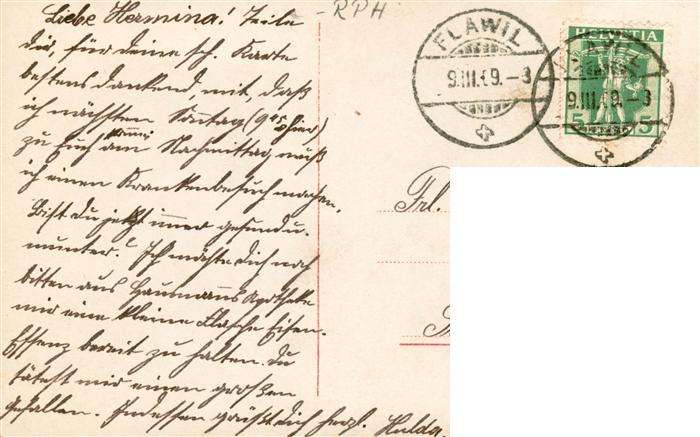 Liebe Hermina! Teile
dir, für deine sch. Karte
bestens dankend, mit, daß
ich nächsten Sonntag (9⁴⁵ hier)
zu Euch komme am Nachmittag, muß
ich einen Krankenbesuch machen.
Bist du jetzt immer gesund u.
munter? Ich möchte dich noch
bitten aus Hausmanns Apotheke
mir eine kleine Flasche Eisen-
Essenz bereit zu halten. Du
tätest mir einen großen
Gefallen. Indessen grüßt dich herzl. Hulda.
RPH
FLAWIL
9.III. 9.-3
HELVETIA
5 5
FLAWIL
9.III. 9.-3
Frl.